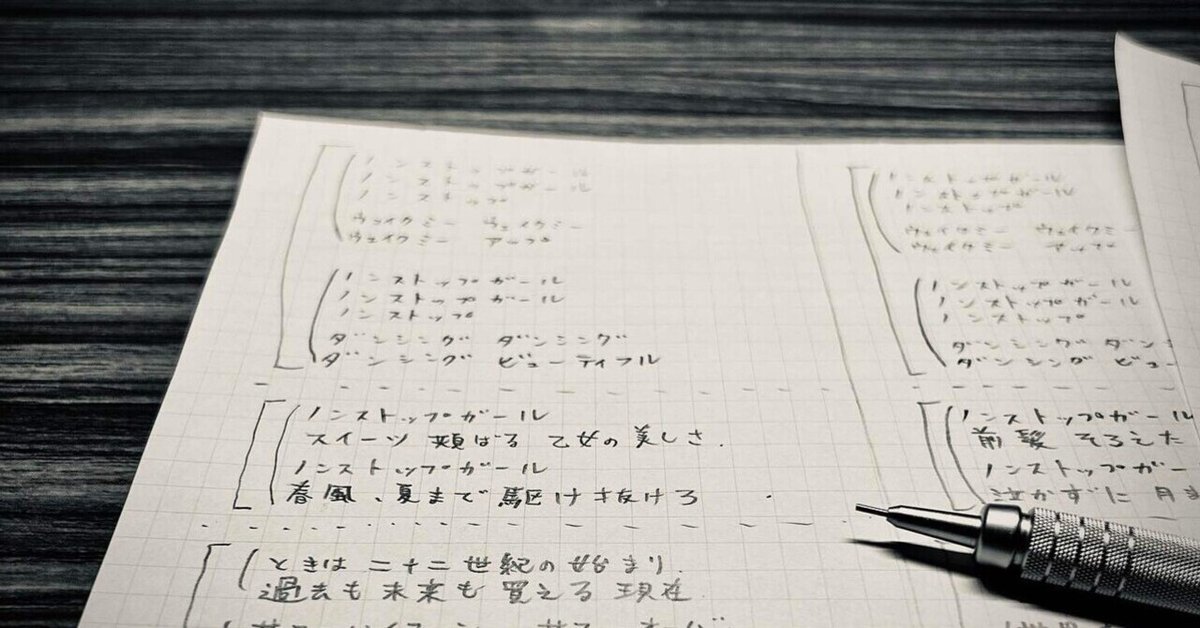 ノンストップガール
ノンストップガール
ノンストップ
ウェイクミー ウェイクミー
ウェイクミー アップ
ノンストップガール
ノンストップガール
ノンストップ
ダンシング ダンシング
ダンシング ビューティフル
ノンストップガール
スイーツ 頬ばる 乙女の美しさ.
ノンストップガール
春風、夏まで駆けぬけろ
ときは 二十二世紀の始まり.
過去も未来も 買える 現在
ノンストップガール
ノンストップガール
ノンストップ
ウェイクミー ウェイクミー
ウェイクミー アップ
ノンストップガール
ノンストップガール
ノンストップ
ダンシング ダン
ダンシング ビュ
ノンストップガール
前髪 そろえた
ノンストップガー
泣かずに 月ま